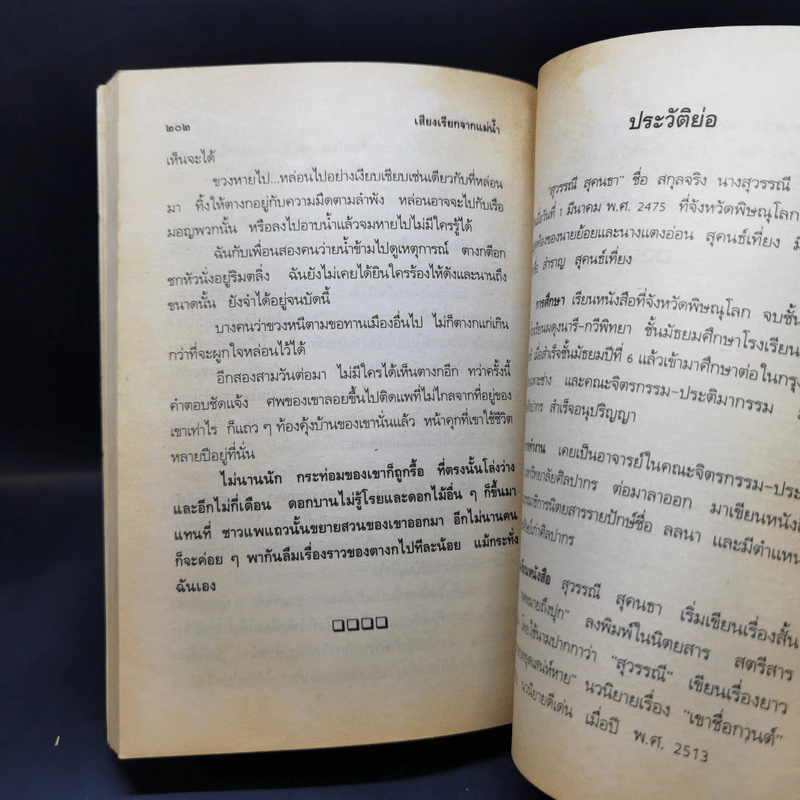 ๒๐๒ เสียงเรียกจากแม่น้ำ
เห็นจะได้
ขวงหายไป...หล่อนไปอย่างเงียบเชียบเช่นเดียวกับที่หล่อน
มา ทิ้งให้ตางกอยู่กับความมืดตามลำพัง หล่อนอาจจะไปกับเรือ
มอญพวกนั้น หรือลงไปอาบน้ำแล้วจมหายไปไม่มีใครรู้ได้
ฉันกับเพื่อนสองคนว่ายน้ำข้ามไปดูเหตุการณ์ ตางกตีอก
ชกหัวนั่งอยู่ริมตลิ่ง ฉันยังไม่เคยได้ยินใครร้องไห้ดังและนานถึง
ขนาดนั้น ยังจำได้อยู่จนบัดนี้
บางคนว่าขวงหนีตามขอทานเมืองอื่นไป ไม่ก็ตางกแก่เกิน
กว่าที่จะผูกใจหล่อนไว้ได้
อีกสองสามวันต่อมา ไม่มีใครได้เห็นตางกอีก ทว่าครั้งนี้
คำตอบชัดแจ้ง ศพของเขาลอยขึ้นไปติดแพที่ไม่ไกลจากที่อยู่ของ
เขาเท่าไร ก็แถว ๆ ท้องคุ้งบ้านของเขานั่นแล้ว หน้าคุกที่เขาใช้ชีวิต
หลายปีอยู่ที่นั่น
ไม่นานนัก กระท่อมของเขาก็ถูกรื้อ ที่ตรงนั้นโล่งว่าง
และอีกไม่กี่เดือน ดอกบานไม่รู้โรยและดอกไม้อื่น ๆ ก็ขึ้นมา
แทนที่ ชาวแพแถวนั้นขยายสวนของเขาออกมา อีกไม่นานคน
ก็จะค่อย ๆ พากันลืมเรื่องราวของตางกไปทีละน้อย แม้กระทั่ง
ฉันเอง
ประวัติย่อ
"สุวรรณี สุคนธา" ชื่อ สกุลจริง นางสุวรรณี
เมื่อวันที่ 1 มีนาคม พ.ศ. 2475 ที่จังหวัดพิษณุโลก
ของนายย้อยและนางแตงอ่อน สุคนธ์เที่ยง มี
ชื่อ สำราญ สุคนธ์เที่ยง
การศึกษา เรียนหนังสือที่จังหวัดพิษณุโลก จบชั้น
โรงเรียนผดุงนารี-กวีพิทยา ชั้นมัธยมศึกษาโรงเรียน
เมื่อสำเร็จชั้นมัธยมปีที่ 6 แล้วเข้ามาศึกษาต่อในกรุง
เพาะช่าง และคณะจิตรกรรม-ประติมากรรม
สำเร็จอนุปริญญา
เคยเป็นอาจารย์ในคณะจิตรกรรม-ประ
ศิลปากร ต่อมาลาออก มาเขียนหนังสือ
นิตยสารรายปักษ์ชื่อ ลลนา และมีตำแหน
เก่าศิลปากร
สุวรรณี สุคนธา เริ่มเขียนเรื่องสั้น
ถึงปุก" ลงพิมพ์ในนิตยสาร สตรีสาร
ใช้นามปากกาว่า "สุวรรณี" เขียนเรื่องยาว
เสน่ห์หาย" นวนิยายเรื่อง "เขาชื่อกานต์"
นวนิยายดีเด่น เมื่อปี พ.ศ. 2513